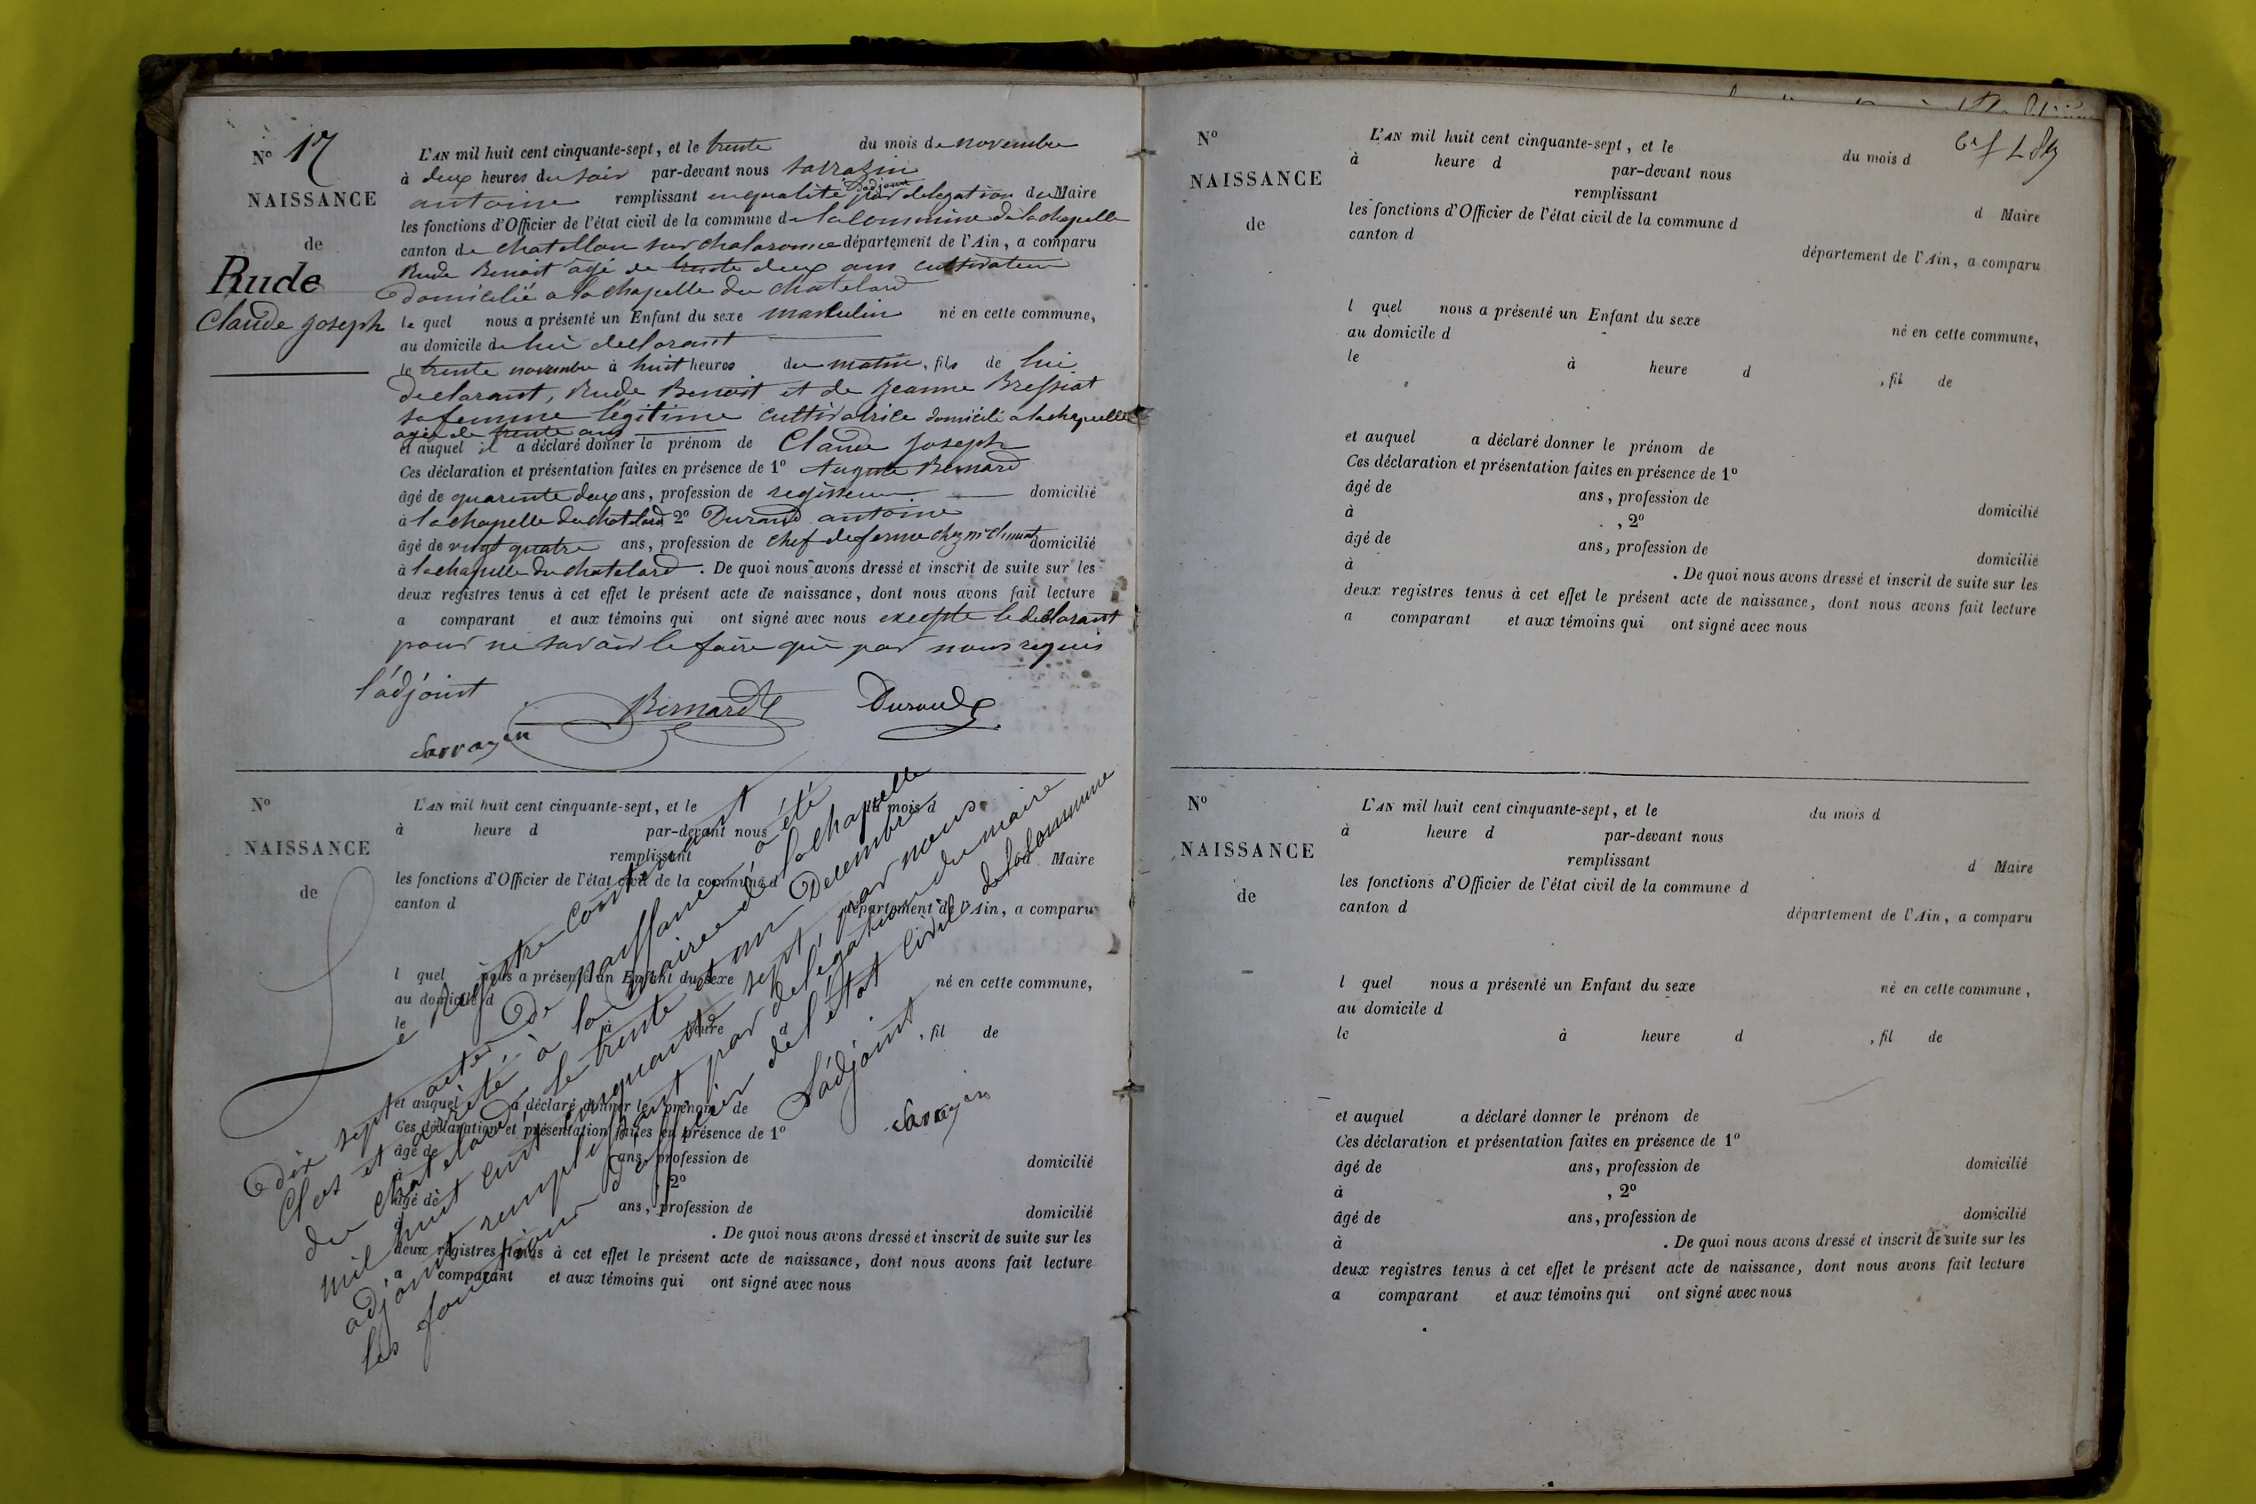 N° 17
NAISSANCE
de
Rude
Claude Joseph
L'AN mil huit cent cinquante-sept, et le trente du mois de novembre
à deux heures du soir par-devant nous Sarrazin
antoine remplissant en qualité d'adjoint par delegation du Maire
les fonctions d'Officier de l'état civil de la commune de la Commune de la chapelle
canton de chatillon sur chalaronne département de l'Ain, a comparu
Rude Benoit âgé de trente deux ans cultivateur
domicilié a la chapelle du chatelard
le quel nous a présenté un Enfant du sexe masculin né en cette commune,
au domicile de lui declarant
le trente novembre à huit heures du matin, fils de lui
declarant, Rude Benoit et de Jeanne Bressiat
sa femme légitime cultivatrice domicilié a la chapelle
agée de trente ans
et auquel il a déclaré donner le prénom de Claude Joseph
Ces déclaration et présentation faites en présence de 1° Auguste Bernard
âgé de quarente deux ans, profession de regisseur domicilié
à la chapelle du chatelard 2° Durand antoine
âgé de vingt quatre ans, profession de chef de ferme chez mr domicilié
à la chapelle du chatelard. De quoi nous avons dressé et inscrit de suite sur les
deux registres tenus à cet effet le présent acte de naissance, dont nous avons fait lecture
a comparant et aux témoins qui ont signé avec nous excepte le declarant
pour ne savoir le faire que par nous requis
l'adjoint
Bernard Durand
Sarrazin
N°
NAISSANCE
de
L'AN mil huit cent cinquante-sept, et le du mois d
à heure d par-devant nous
remplissant d Maire
les fonctions d'Officier de l'état civil de la commune d
canton d département de l'Ain, a comparu
l quel nous a présenté un Enfant du sexe né en cette commune,
au domicile d
le à heure d , fil de
et auquel a déclaré donner le prénom de
Ces déclaration et présentation faites en présence de 1°
âgé de ans, profession de domicilié
à , 2°
âgé de ans, profession de domicilié
à . De quoi nous avons dressé et inscrit de suite sur les
deux registres tenus à cet effet le présent acte de naissance, dont nous avons fait lecture
a comparant et aux témoins qui ont signé avec nous
Le Registre Contenant
dix sept actes De naissance, a été
Clos et arrêté à la Mairie de la chapelle
du chatelard le trente et un Decembre
mil huit cent cinquante sept, par nous
adjoint remplissant par delegation du maire
les fonctions d'officier de l'état Civil de la Commune
L'adjoint
Sarrazin
N°
NAISSANCE
de
L'AN mil huit cent cinquante-sept, et le du mois d
à heure d par-devant nous
remplissant d Maire
les fonctions d'Officier de l'état civil de la commune d
canton d département de l'Ain, a comparu
l quel nous a présenté un Enfant du sexe né en cette commune,
au domicile d
le à heure d , fil de
et auquel a déclaré donner le prénom de
Ces déclaration et présentation faites en présence de 1°
âgé de ans, profession de domicilié
à , 2°
âgé de ans, profession de domicilié
à . De quoi nous avons dressé et inscrit de suite sur les
deux registres tenus à cet effet le présent acte de naissance, dont nous avons fait lecture
a comparant et aux témoins qui ont signé avec nous
N°
NAISSANCE
de
L'AN mil huit cent cinquante-sept, et le du mois d
à heure d par-devant nous
remplissant d Maire
les fonctions d'Officier de l'état civil de la commune d
canton d département de l'Ain, a comparu
l quel nous a présenté un Enfant du sexe né en cette commune,
au domicile d
le à heure d , fil de
et auquel a déclaré donner le prénom de
Ces déclaration et présentation faites en présence de 1°
âgé de ans, profession de domicilié
à , 2°
âgé de ans, profession de domicilié
à . De quoi nous avons dressé et inscrit de suite sur les
deux registres tenus à cet effet le présent acte de naissance, dont nous avons fait lecture
a comparant et aux témoins qui ont signé avec nous